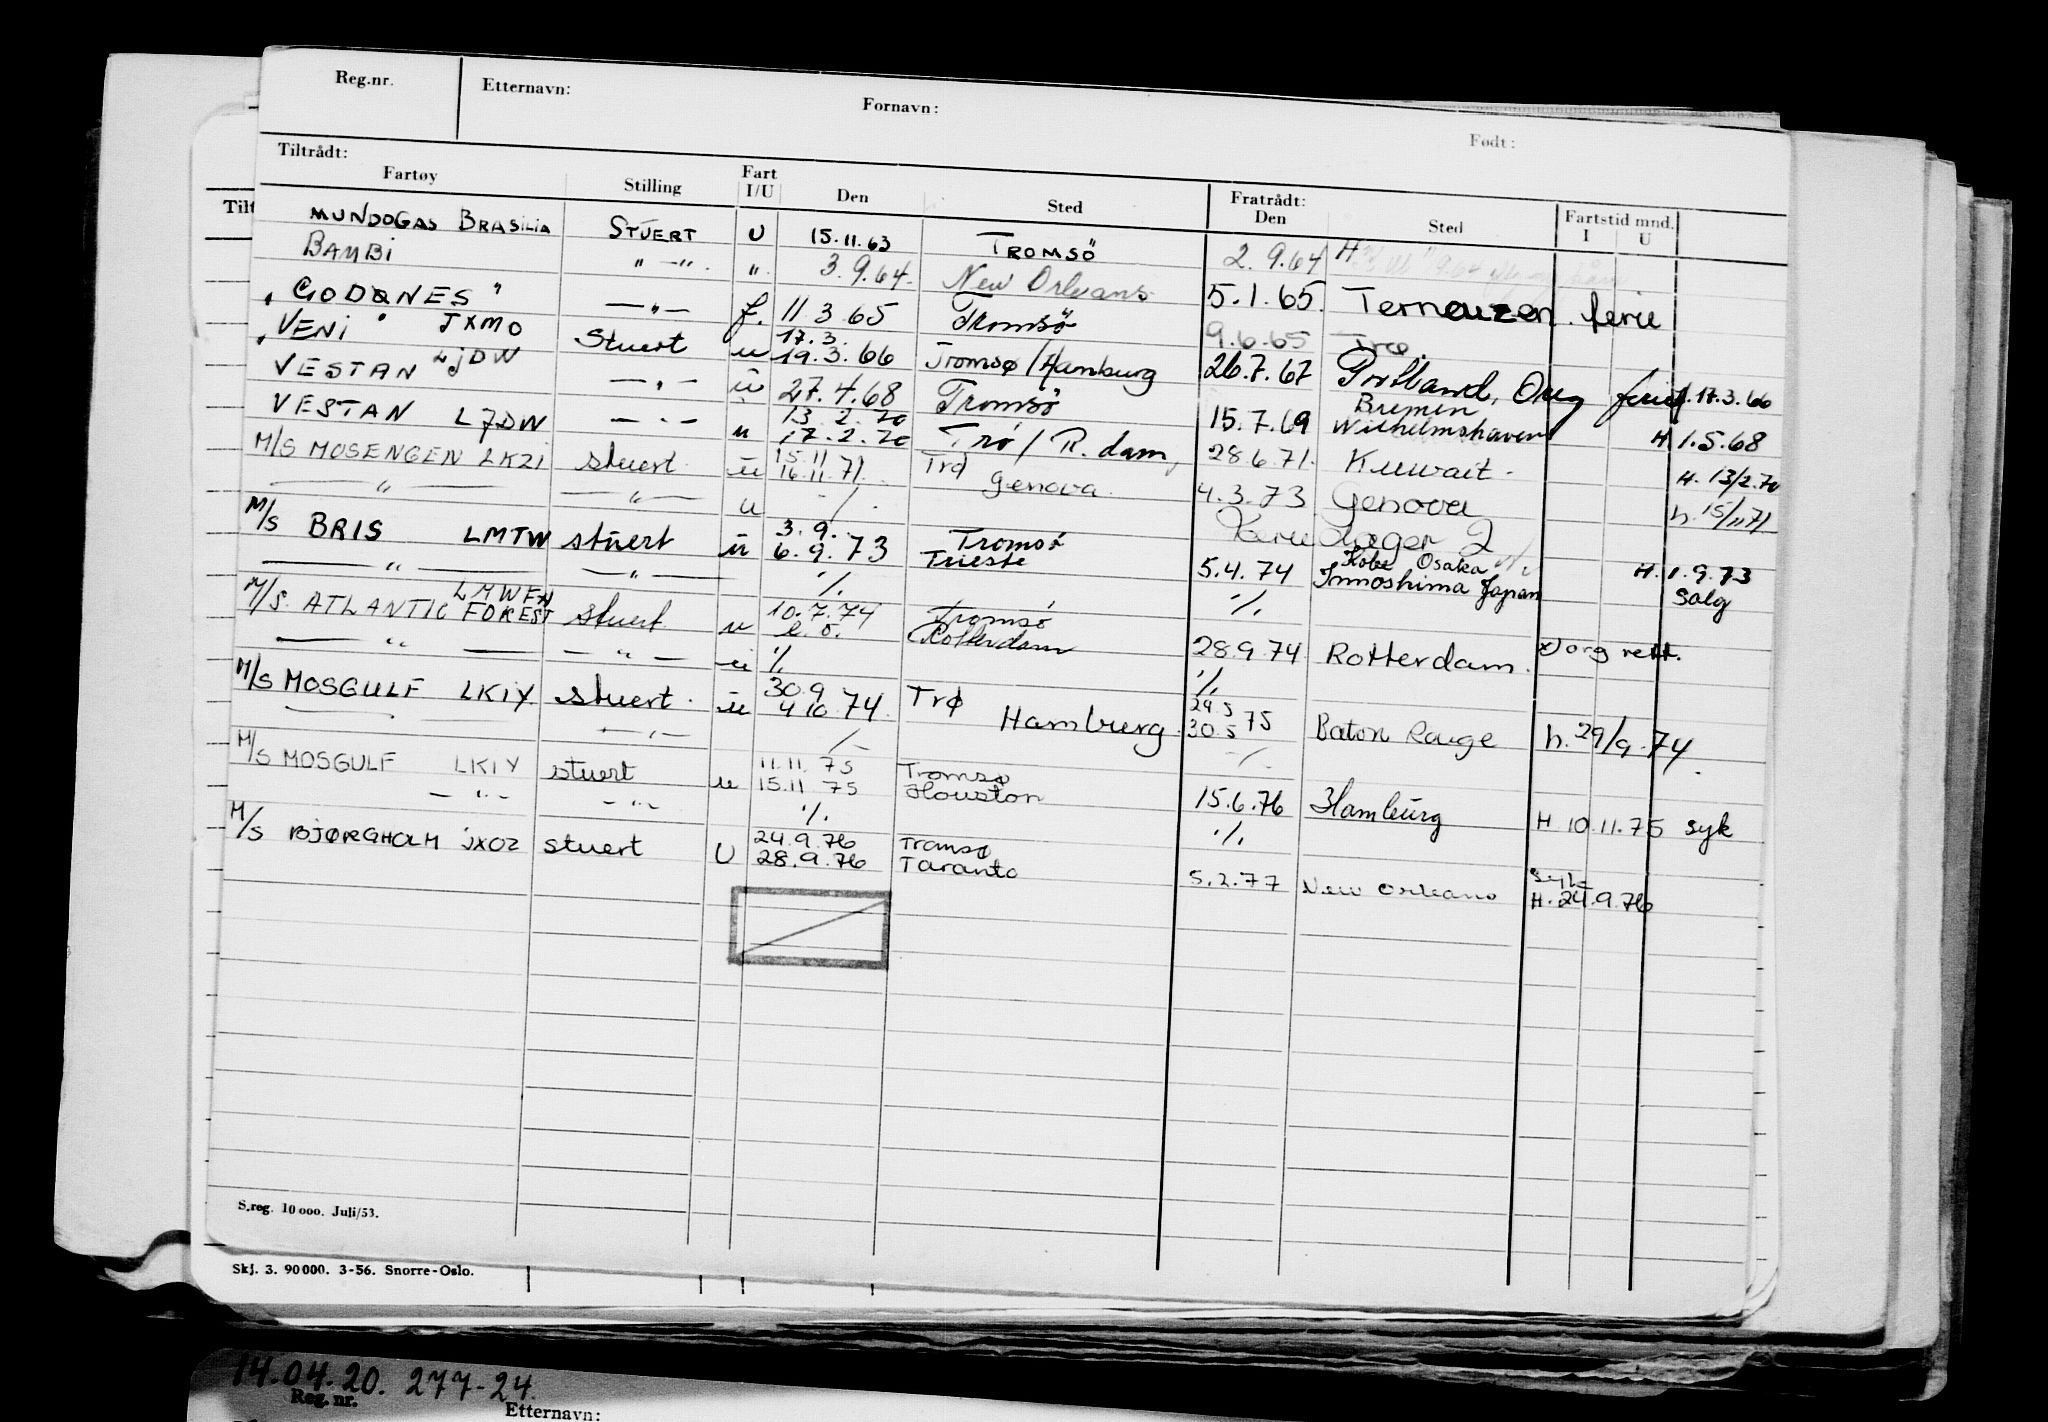 Reg.nr. Etternavn: Fornavn: Født:
Tiltrådt: Fratrådt:
Fartøy Stilling Fart I/U Den Sted Den Sted Fartstid mnd. I U
Tilt
MUNDOGAS BRASILIA STUERT U 15.11.63 TROMSÖ 2.9.64 H
BAMBI " —". ". 3.9.64. New Orleans 5.1.65. Terneuzen. ferie
"GODØNES" —"— f. 11.3.65 Tromsö 9.6.65 Trø
"VENI" JXMO Stuert u 17.3. 19.3.66 Tromsø/Hamburg 26.7.67 Portland, Oreg ferie H. 17.3.66
VESTAN LJDW —"— u 27.4.68 Tromsö 15.7.69 Bremen Wilhelmshaven H 1.5.68
VESTAN LJDW —"— u 13.2.70 17.2.70 Trö/R.dam, 28.6.71. Kuwait. H. 13/2.70
M/S MOSENGEN LKZI stuert u 15.11 16.11.71. Trø Genova. 4.3.73 Genova h. 15/11 71
—"— —"— u -/. Feriedager 2
M/S BRIS LMTW stuert u 3.9. 6.9.73 Tromsö Trieste 5.4.74 Kobe Osaka Innoshima Japan H. 1.9.73 Salg
—"— —"— ·/. ·/.
M/S. ATLANTIC FOREST LMWFN stuert u 10.7.74 Tromsö Rotterdam 28.9.74 Rotterdam. org rett.
—"— —"— u ·/. ·/.
M/S MOSGULF LKIY stuert. u 30.9 4.10.74. Trø Hamburg. 29.5 30.5 75 Baton Rouge h. 29/9.74.
—"— ·/- -/.
M/S MOSGULF LKIY stuert u 11.11.75 15.11.75 Tromsø Houston 15.6.76 Hamburg H 10.11.75 syk
—"— —"— ·/. ·/.
M/S BJØRGHOLM JXOZ stuert U 24.9.76 28.9.76 Tromsø Taranto 5.2.77 New Orleans syk H. 24.9.76
S.reg. 10000. Juli/53.
Skj. 3. 90000. 3-56. Snorre-Oslo.
14.04.20. 277-24.
Reg. nr. Etternavn: